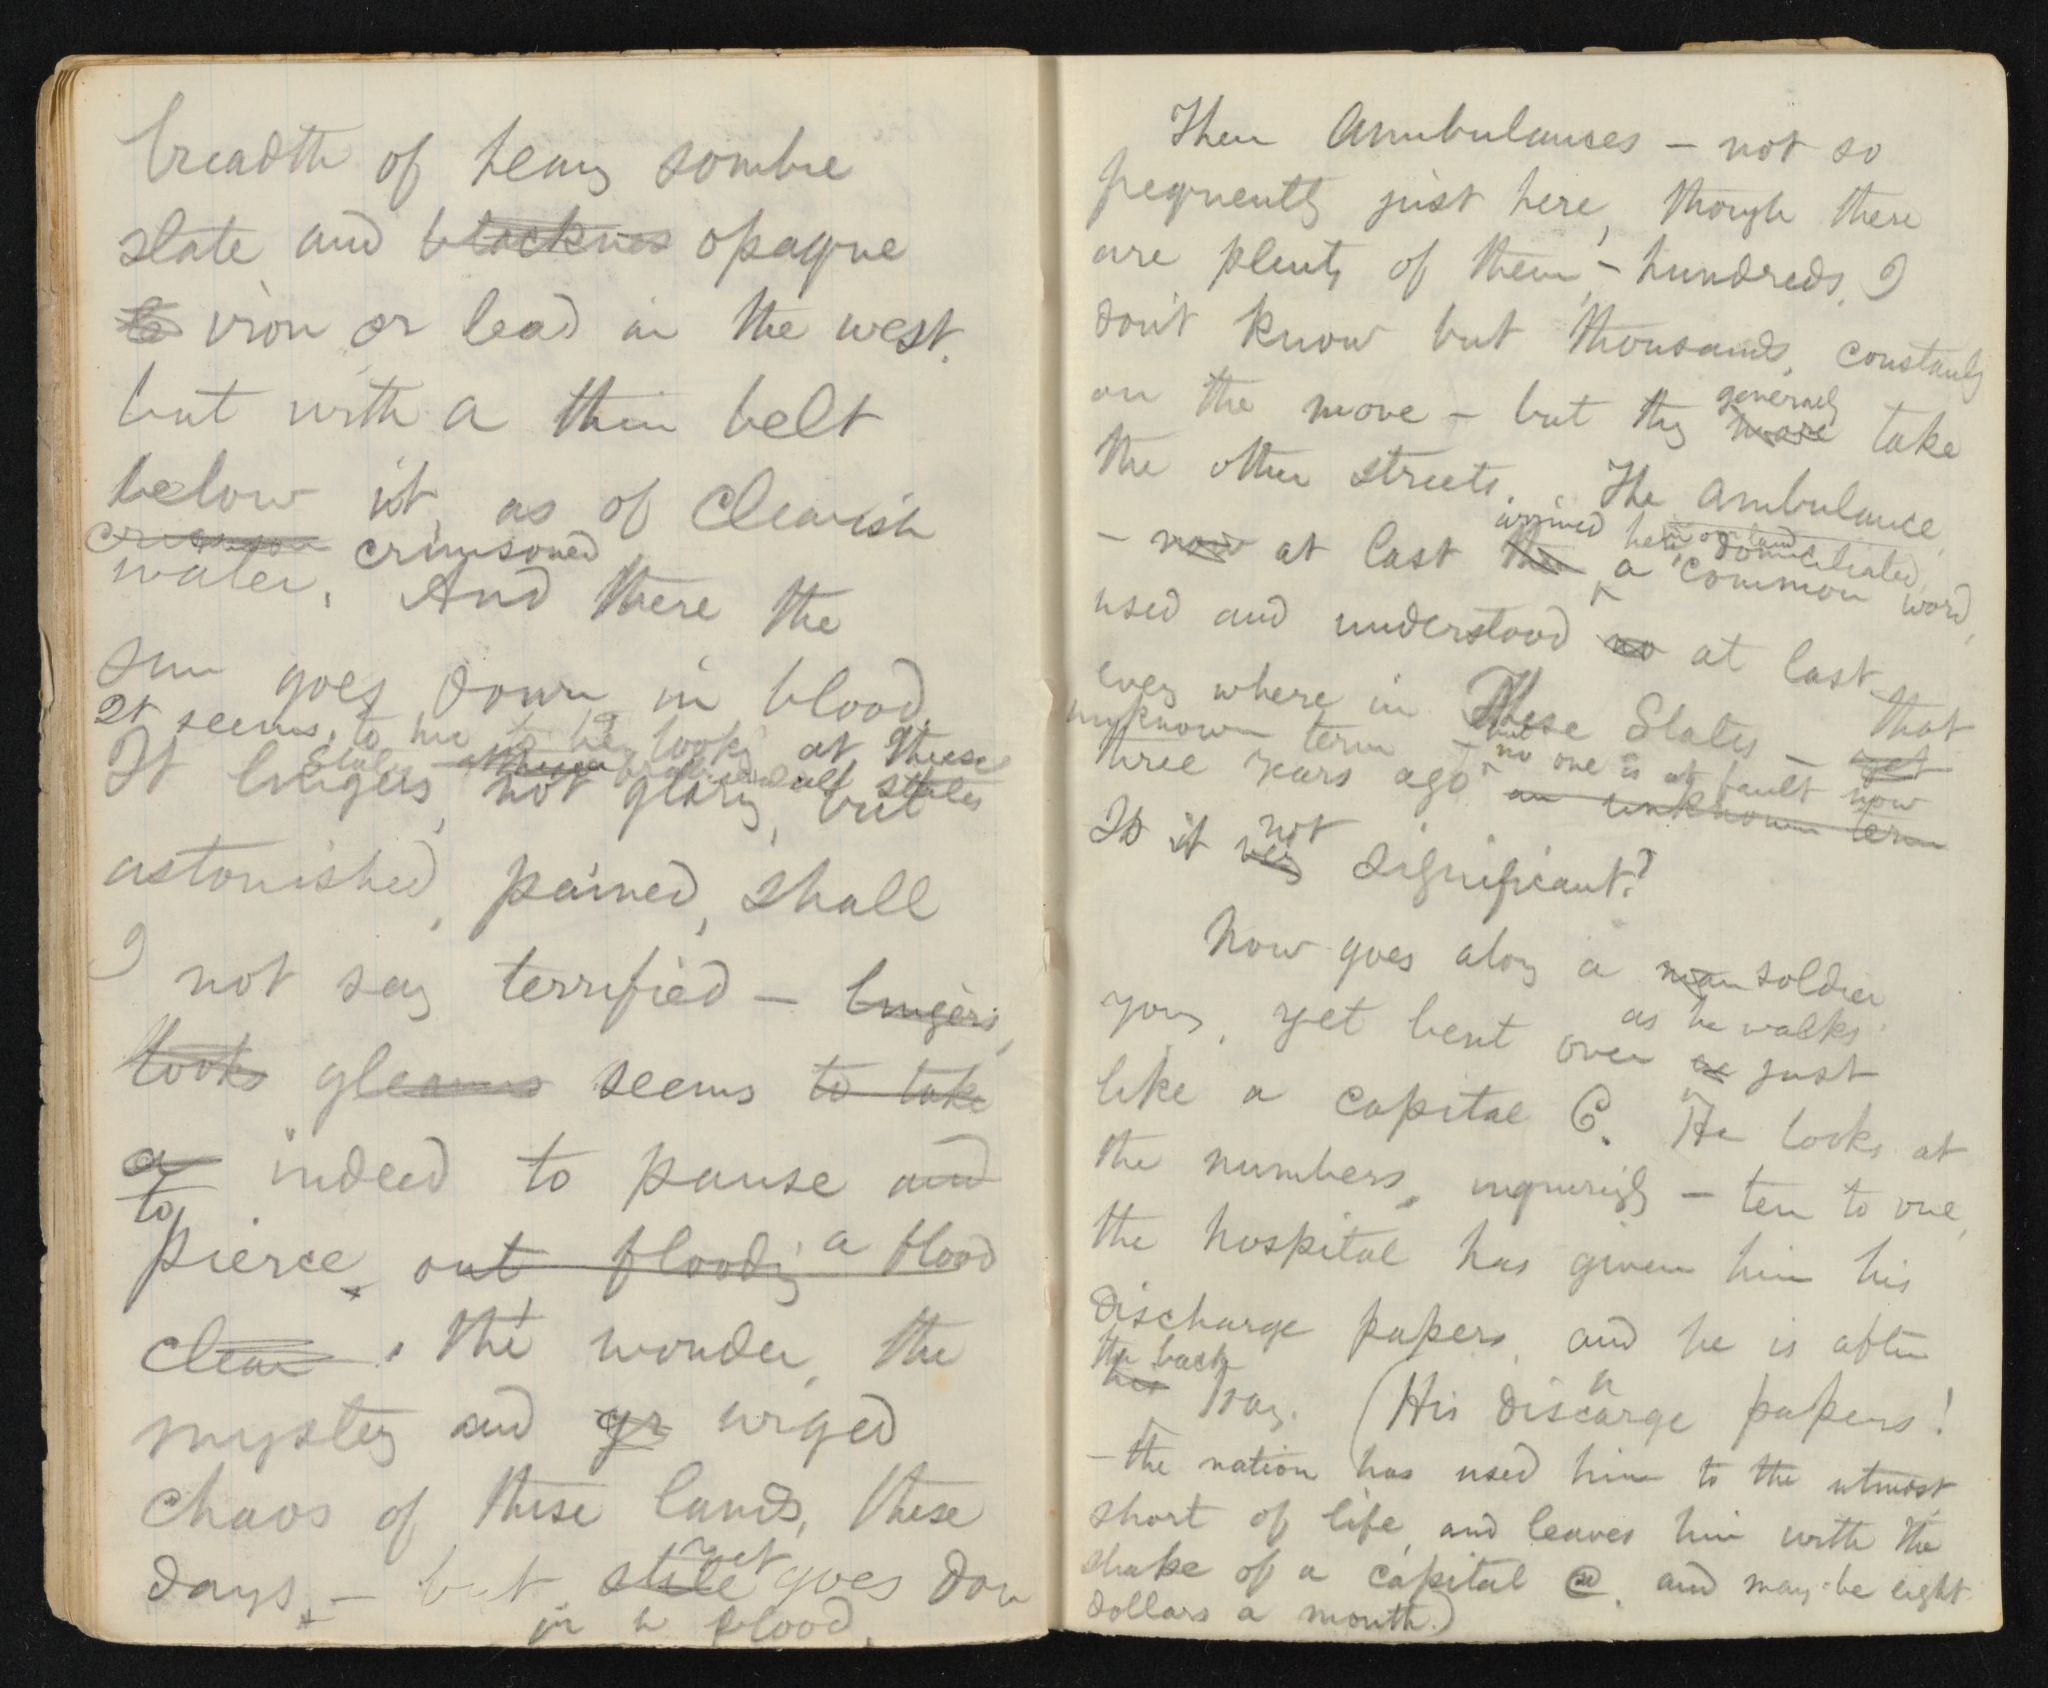 breadth of heavy sombre
slate and blackness opaque
to iron or lead in the west.
but with a thin belt
below it, as of clearish
crimson crimsoned
water. And there the
sun goes down in blood
It seems to me to be looking at these
States all states
It lingers, not glory, but
astonished, pained, shall
I not say terrified — lingers,
looks gleams seems to take
a indeed to pause and
to
pierce out flooding a flood
clear. the wonder, the
mystery and gr urged
chaos of these lands, these
days, — but still yet goes down
in blood.
Then Ambulances — not so
frequently just here, though there
are plenty of them, — hundreds, I
don't know but thousands, constantly
on the move — but they more generally take
the other streets. The ambulance,
arrived here in our land domiciliated,
— now at last the a common word,
used and understood no at last
every where in These States — that
unknown term — but no one is at fault now
three years ago an unknown term yet
Is it very not significant?
Now goes along a man soldier
young, yet bent over as he walks just
like a capital C. He looks at
the numbers, inquiringly — ten to one,
the hospital has given him his
discharge papers, and he is after
the back
his pay. (His discharge papers!
— the nation has used him to the utmost
short of life, and leaves him with the
shape of a capital C. and may-be eight
dollars a month.)